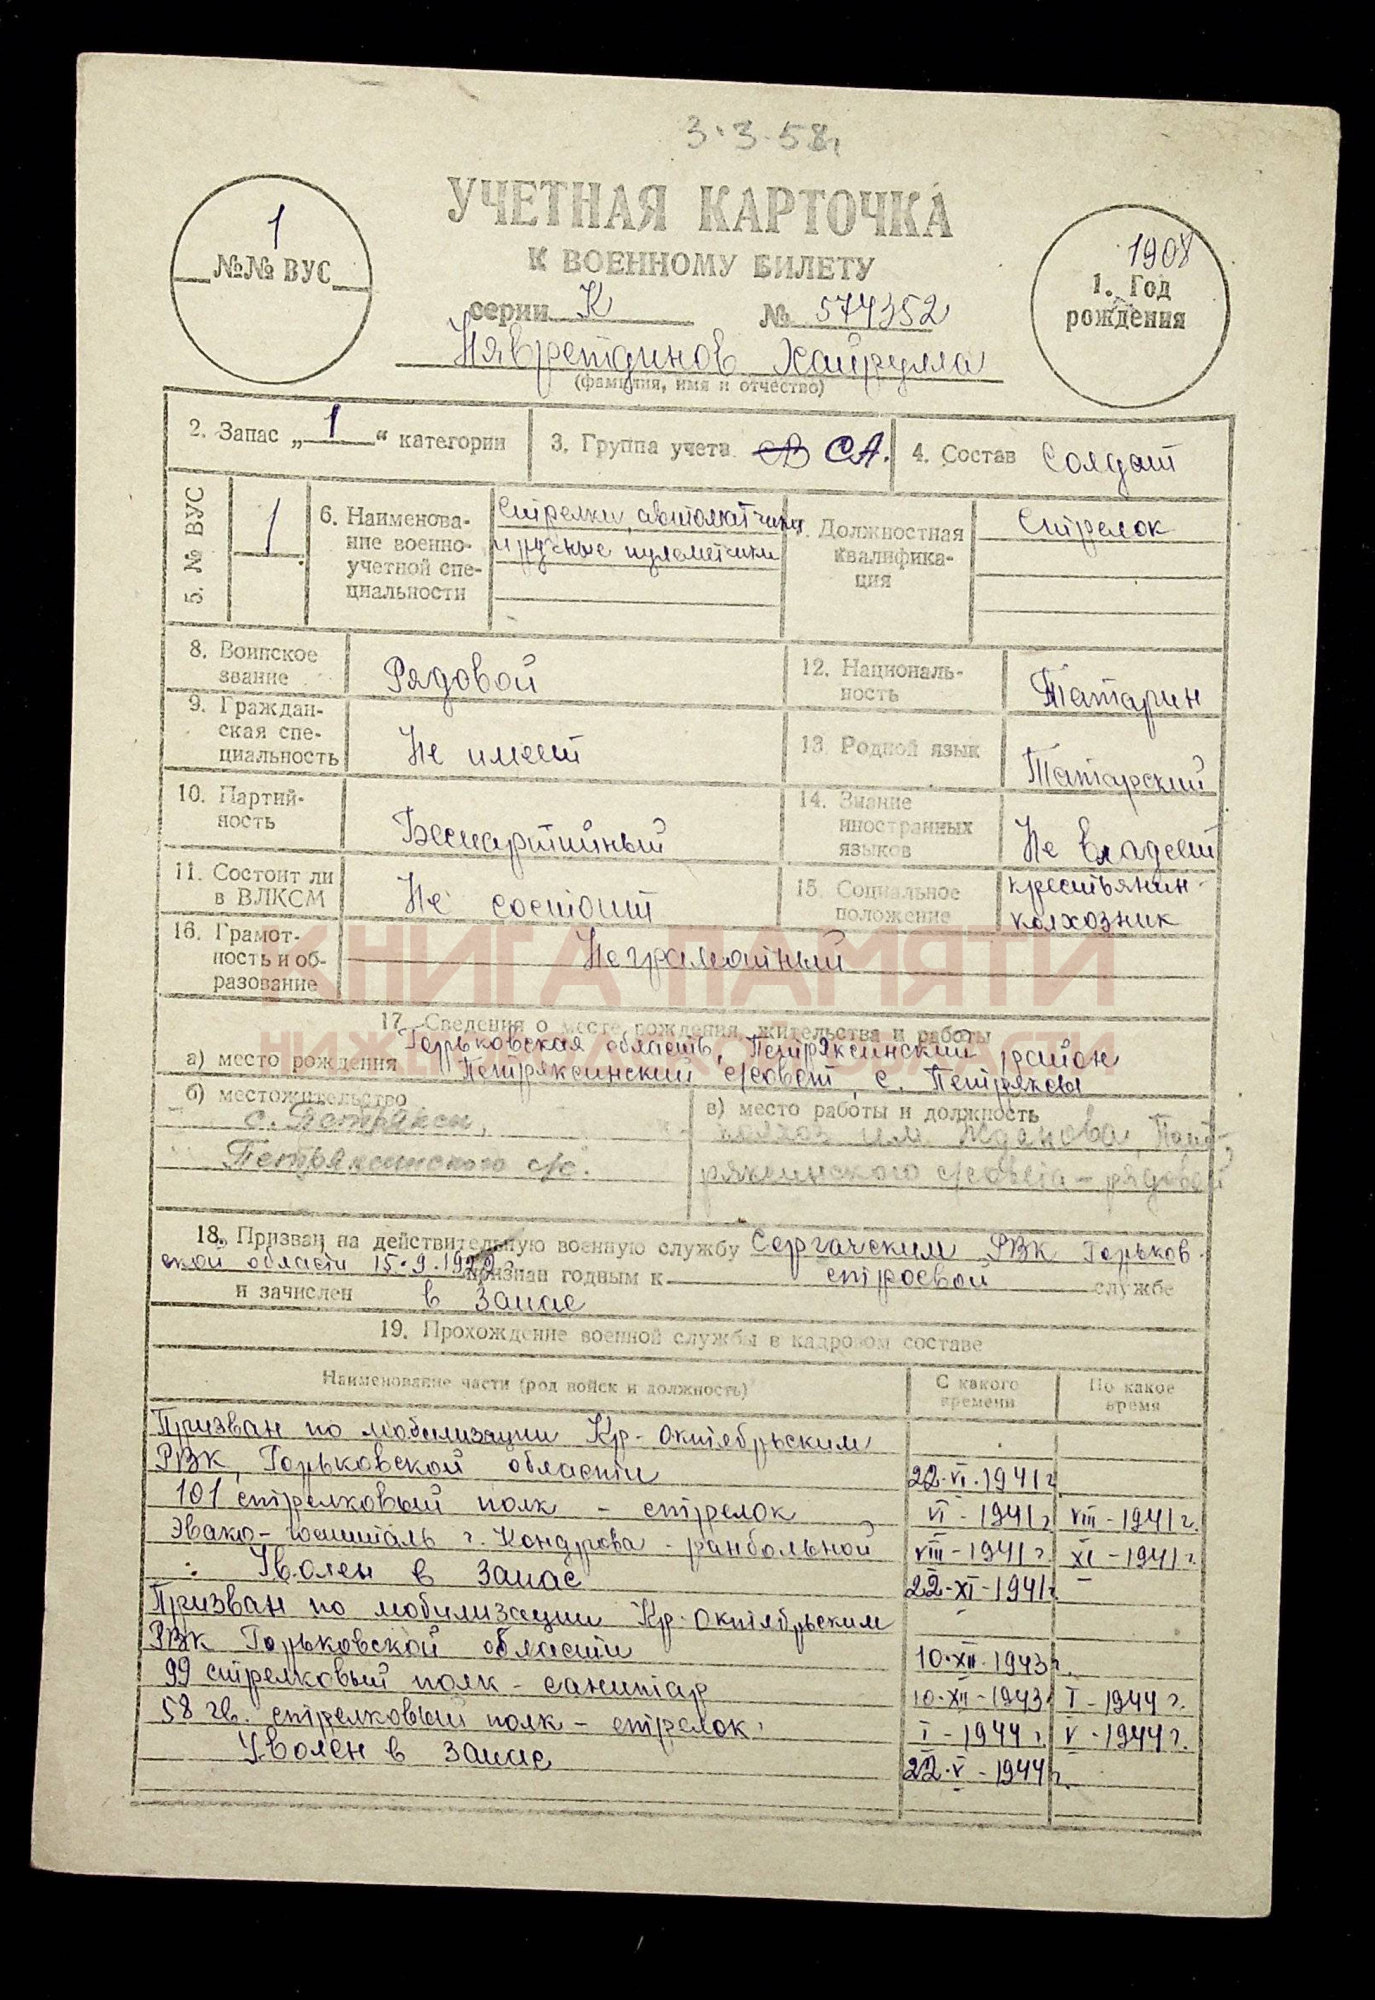 3.3.58г
УЧЕТНАЯ КАРТОЧКА
К ВОЕННОМУ БИЛЕТУ
1
№№ ВУС
1908
1. Год
рождения
серии К № 574352
Нявретдинов Хайрулла
(фамилия, имя и отчество)
2. Запас „1“ категории
3. Группа учета СА.
4. Состав Солдат
5. № ВУС
1
6. Наименова-
ние военно-
учетной спе-
циальности
Стрелки, автоматчики
и ручные пулеметчики
Должностная
квалифика-
ция
Стрелок
8. Воинское
звание
Рядовой
12. Националь-
ность
Татарин
9. Граждан-
ская спе-
циальность
Не имеет
13. Родной язык
Татарский
10. Партий-
ность
Беспартийный
14. Знание
иностранных
языков
Не владеет
11. Состоит ли
в ВЛКСМ
Не состоит
15. Социальное
положение
крестьянин-
колхозник
16. Грамот-
ность и об-
разование
Неграмотный
КНИГА ПАМЯТИ
НИЖЕГОРОДСКОЙ ОБЛАСТИ
17. Сведения о месте рождения, жительства и работы
Горьковская область, Петряксинский район
а) место рождения Петряксинский с/совет, с. Петряксы
б) местожительство
с. Петряксы,
Петряксинского с/с.
в) место работы и должность
колхоз им. Жданова, Пет-
ряксинского с/совета - рядовой
18. Призван на действительную военную службу Сергачским РВК Горьков-
ской области 15.9.19 признан годным к строевой службе
и зачислен в Запас
19. Прохождение военной службы в кадровом составе
Наименование части (род войск и должность)
С какого
времени
По какое
время
Призван по мобилизации Кр-Октябрьским
РВК, Горьковской области 22.VI.1941г.
101 стрелковый полк - стрелок VI-1941г. VIII-1941г.
Эвако-госпиталь г. Кондрова - ранбольной VIII-1941г. XI-1941г.
Уволен в запас 22-XI-1941г. -
Призван по мобилизации Кр-Октябрьским
РВК Горьковской области 10.XII.1943г.
99 стрелковый полк - санитар 10.XII-1943г. I-1944г.
58 гв. стрелковый полк - стрелок. I-1944г. V-1944г.
Уволен в запас 22.V-1944г.